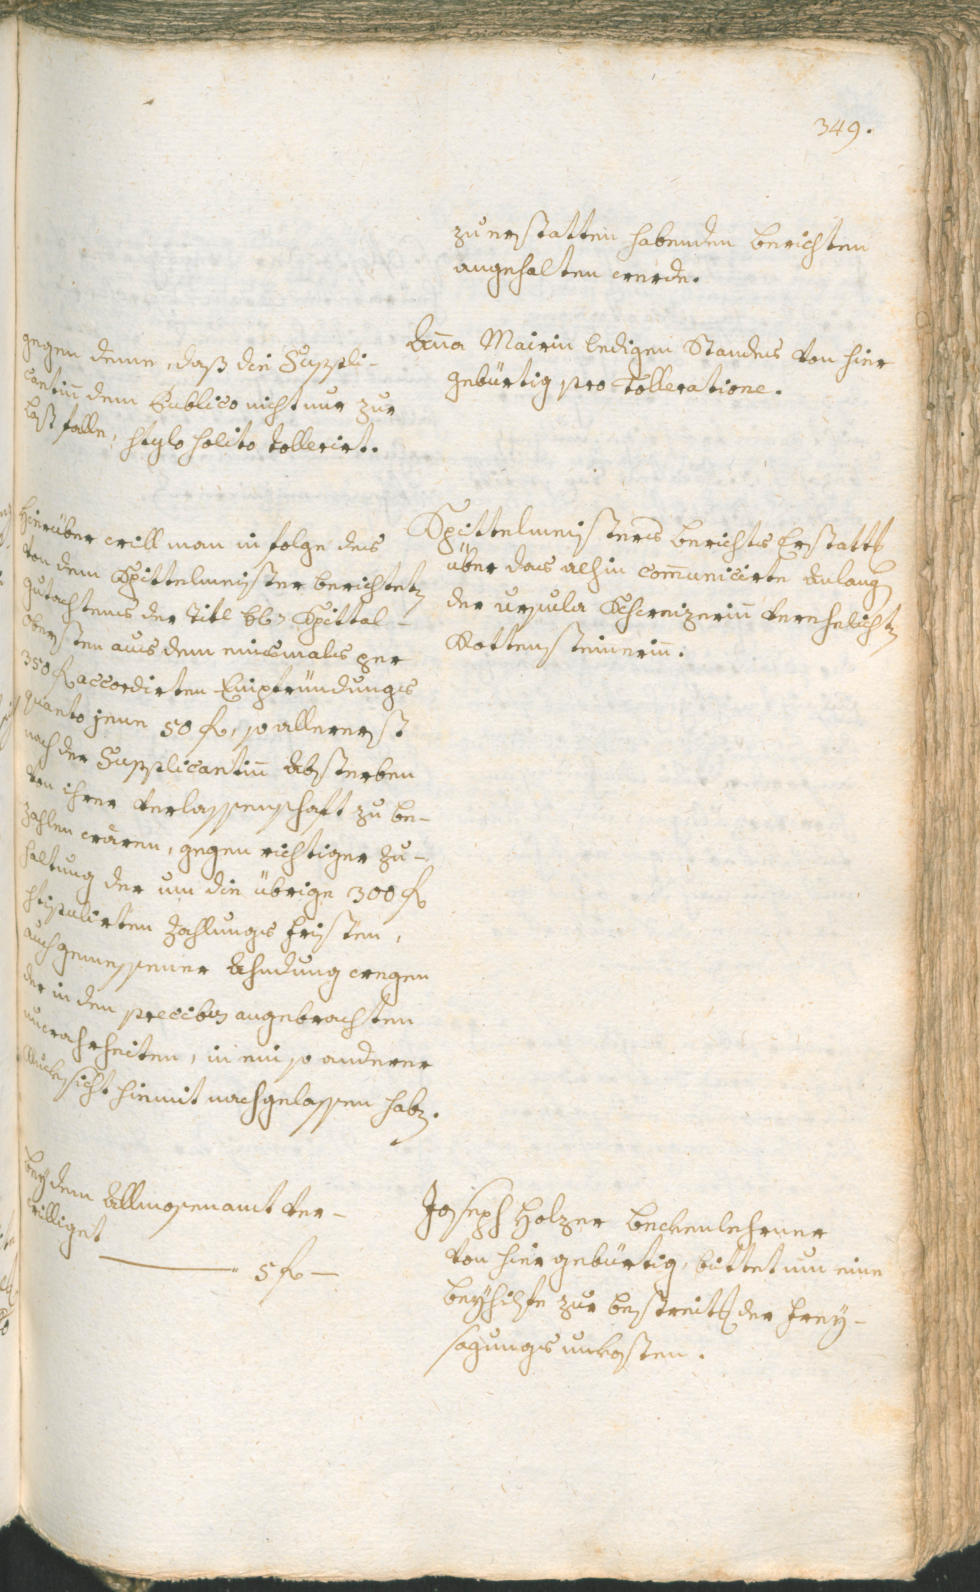 349.
zu erstatten habenden berichten
angehalten werde.
Anna Mairin ledigen Standes von hier
gebürtig pro Tolleratione.
gegen deme, daß die Suppli-
cantin dem Publico nicht nur zur
last falle, stylo solito tollerirt.
Spittelmeisters berichts Erstattg
über das alhin com̄unicirte Anlang
der Ursula Schweizerin verehelichte
Rottensteinerin.
Hierüber will man in folge des
von dem Spittelmeister berichtet
gutachtens der Titl Spittal-
obersten aus dem einsmals per
350 f accordirten Einpfründungs
quanto jene 50 f, so allererst
nach der Supplicantin Absterben
von ihrer verlassenschaft zu be-
zahlen wären, gegen richtiger zu-
haltung der um die übrige 300 f
stipulirten Zahlungs fristen,
auch gemessener Ahndung wegen
der in den precibus angebrachten
unwahrheiten, in ein so anderer
Rucksicht hiemit nachgelassen habe.
Joseph Holzer beckenlehrner
von hier gebürtig, bittet um eine
beyhilfe zur bestreittg der frey-
sagungs unkosten.
bey dem Allmosenamt ver-
williget
5 f —